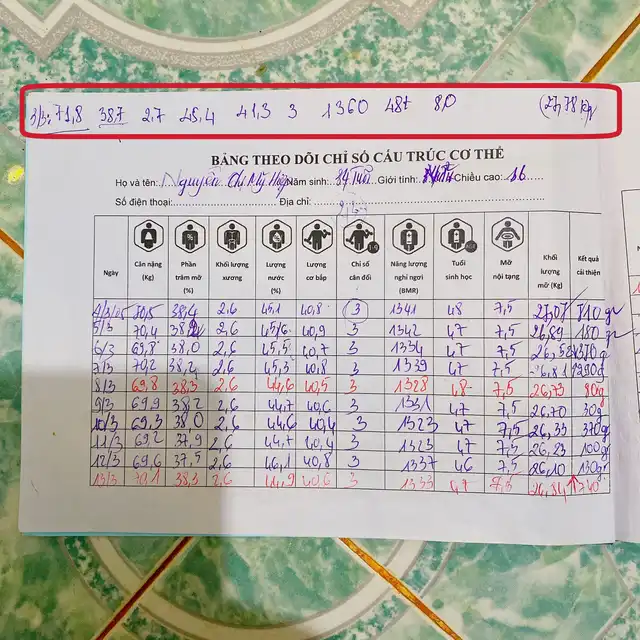 3/3: 71,8 38,7 2,7 45,4 41,3 3 1360 48t 8,0 (27,78 kg
BẢNG THEO DÕI CHỈ SỐ CẤU TRÚC CƠ THỂ
Họ và tên: Nguyễn Thị Mỹ Năm sinh: 39 Tuổi Giới tính: Chiều cao: 16
Số điện thoại: Địa chỉ:
Ngày Cân nặng (Kg) Phần trăm mỡ (%) Khối lượng xương Lượng nước (%) Lượng cơ bắp Chỉ số cân đối Năng lượng nghỉ ngơi (BMR) Tuổi sinh học Mỡ nội tạng Khối lượng mỡ (Kg) Kết quả cải thiện
4/3/25 70,5 38,4 2,6 45,1 40,8 3 1341 48 7,5 27,07 710g
5/3 70,4 38,2 2,6 45,6 40,9 3 1342 47 7,5 26,89 180g
6/3 69,8 38,0 2,6 45,5 40,7 3 1334 47 7,5 26,52 370g
7/3 70,2 38,2 2,6 45,3 40,8 3 1339 47 7,5 26,81 290g
8/3 69,8 38,3 2,6 44,6 40,5 3 1328 48 7,5 26,73 80g
9/3 69,9 38,2 2,6 44,7 40,6 3 1331 47 7,5 26,70 30g
10/3 69,3 38,0 2,6 44,6 40,4 3 1323 47 7,5 26,33 370g
11/3 69,2 37,9 2,6 44,7 40,4 3 1323 47 7,5 26,23 100g
12/3 69,6 37,5 2,6 46,1 40,8 3 1337 46 7,5 26,10 130g
13/3 70,1 38,3 2,6 44,9 40,6 3 1333 47 7,5 26,84 740